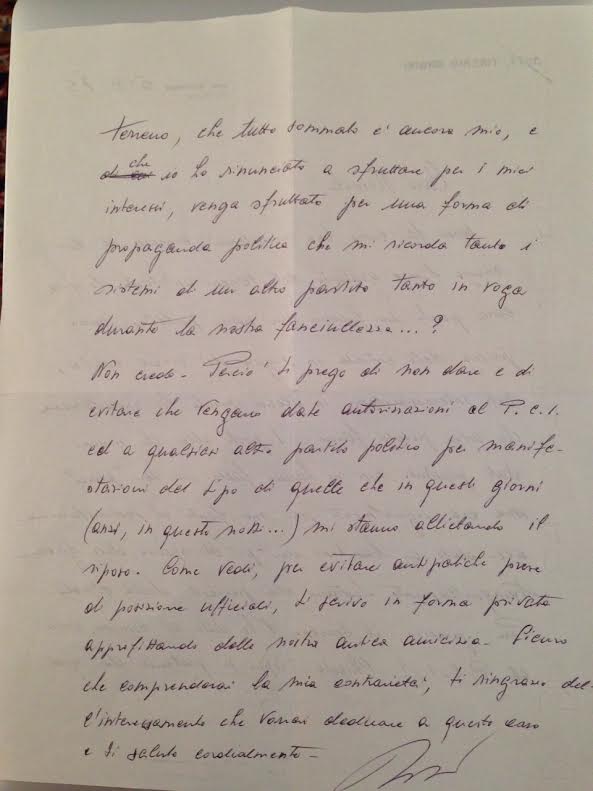 terreno, che tutto sommato e' ancora mio, e
che io ho rinunciato a sfruttare per i miei
interessi, venga sfruttato per una forma di
propaganda politica che mi ricorda tanto i
sistemi di un altro partito tanto in voga
durante la nostra fanciullezza... ?
Non credo - Percio' ti prego di non dare e di
evitare che vengano date autorizzazioni al P.C.I.
ed a qualsiasi altro partito politico per manife-
stazioni del tipo di quelle che in questi giorni
(anzi, in queste notti...) mi stanno allietando il
riposo. Come vedi, per evitare antipatiche prese
di posizione ufficiali, ti scrivo in forma privata
approfittando della nostra antica amicizia. Sicuro
che comprenderai la mia contrarietà, ti ringrazio del-
l'interessamento che vorrai dedicare a questo caso
e ti saluto cordialmente -